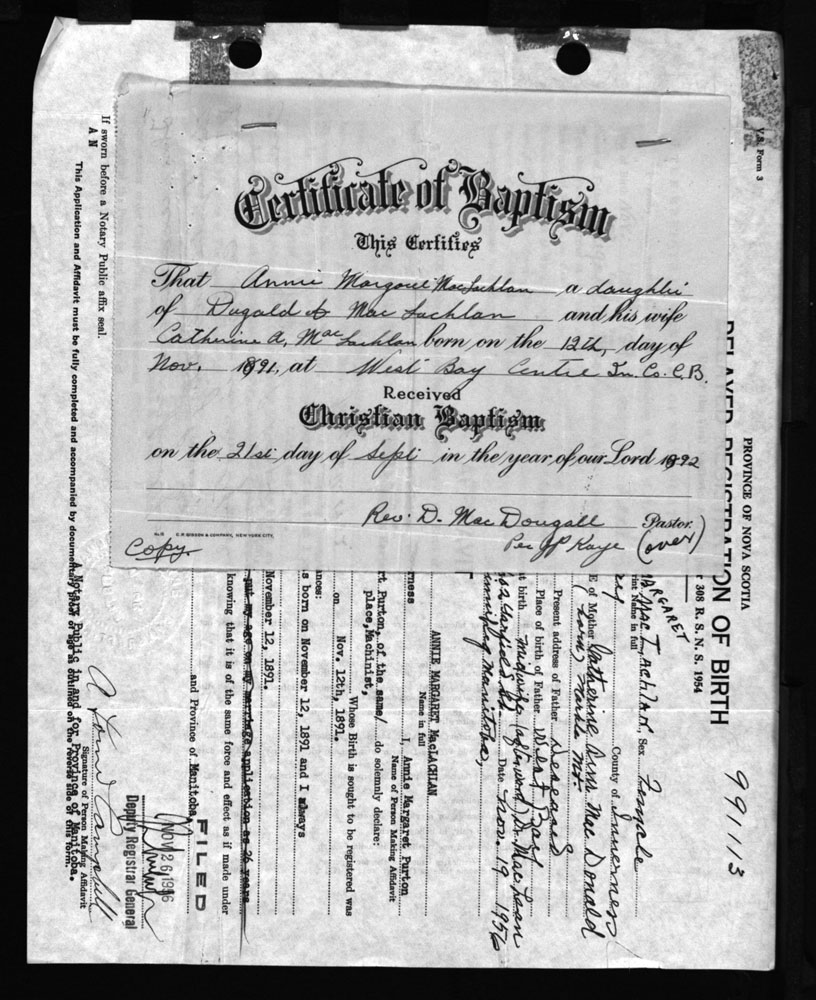 Certificate of Baptism
This Certifies
That Annie Margaret MacLachlan a daughter
of Dugald MacLachlan and his wife
Catherine A. MacLachlan born on the 12th, day of
Nov. 1891, at West Bay Centre In. Co. C.B.
Received
Christian Baptism
on the 21st day of Sept in the year of our Lord 1892
Rev. D. MacDougall Pastor.
Per JP Kaye (over)
COMPANY, NEW YORK CITY.
Copy.
V.S. Form 3
PROVINCE OF NOVA SCOTIA
DELAYED REGISTRATION OF BIRTH
308 R. S. N. S. 1954
991113
rint Name in full
MARGARET
MacLachlan, Sex Female
County of Inverness
E of Mother Catherine Ann MacDonald
(born) Marble Mt.
Present address of Father Deceased
Place of birth of Father West Bay
t birth midwife (afterward) Dr. MacLean
Winnipeg, Manitoba, Date Nov. 19 1956
ANNIE MARGARET MacLACHLAN
Name in full
I, Annie Margaret Purton
Name of Person Making Affidavit
rt Purton, of the same/ do solemnly declare:
place, Machinist,
Whose Birth is sought to be registered was
on Nov. 12th, 1891.
s born on November 12, 1891 and I always
November 12, 1891.
put my age on my marriage application as 26 years
knowing that it is of the same force and effect as if made under
and Province of Manitoba
FILED
NOV 26 1956
Deputy Registrar General
Signature of Person Making Affidavit
A Notary Public in and for Province of Manitoba.
If sworn before a Notary Public affix seal.
A N
This Application and Affidavit must be fully completed and accompanied by documentary proof of age as outlined on the reverse side of this form.